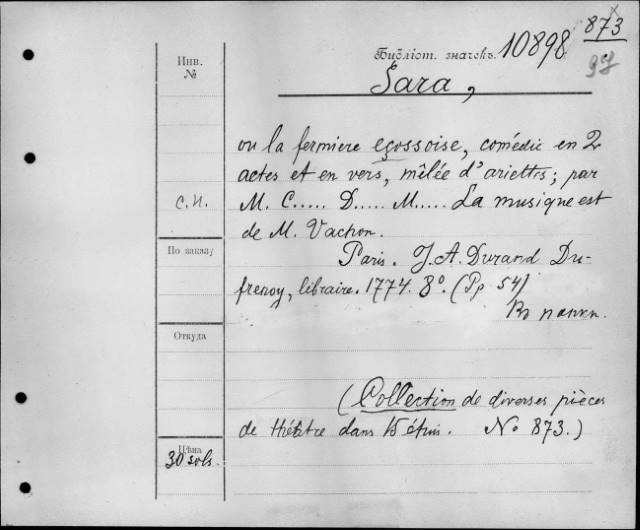 Инв. №
Библіот. значекъ 10898 873
37
Sara,
ou la fermiere eçossoise, comédie en 2
actes et en vers, mêlée d'ariettes; par
С.И. M. C..... D..... M..... La musique est
de M. Vachon.
По заказу Paris. J. A. Durand Du-
frenoy, libraire. 1774. 8º. (Pp 54)
Въ папкѣ.
Откуда
(Collection de diverses pièces
de théâtre dans 15 étuis. Nº 873.)
Цѣна
30 sols.